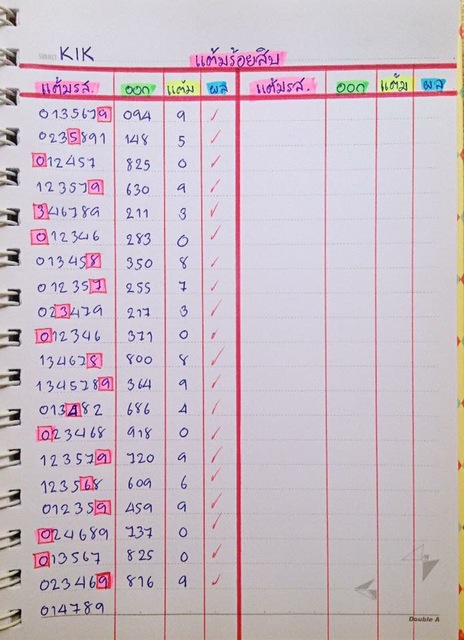 SUBJECT KIK
แต้มร้อยสิบ
แต้มรส. ออก แต้ม ผล แต้มรส. ออก แต้ม ผล
0135679 094 9 ✓
0235891 148 5 ✓
012457 825 0 ✓
123579 630 9 ✓
346789 211 3 ✓
012346 283 0 ✓
013458 350 8 ✓
012357 255 7 ✓
023479 217 3 ✓
012346 371 0 ✓
134678 800 8 ✓
1345789 364 9 ✓
013482 686 4 ✓
023468 918 0 ✓
123579 720 9 ✓
123568 609 6 ✓
012359 459 9 ✓
024689 737 0 ✓
013567 825 0 ✓
023469 816 9 ✓
014789
Double A